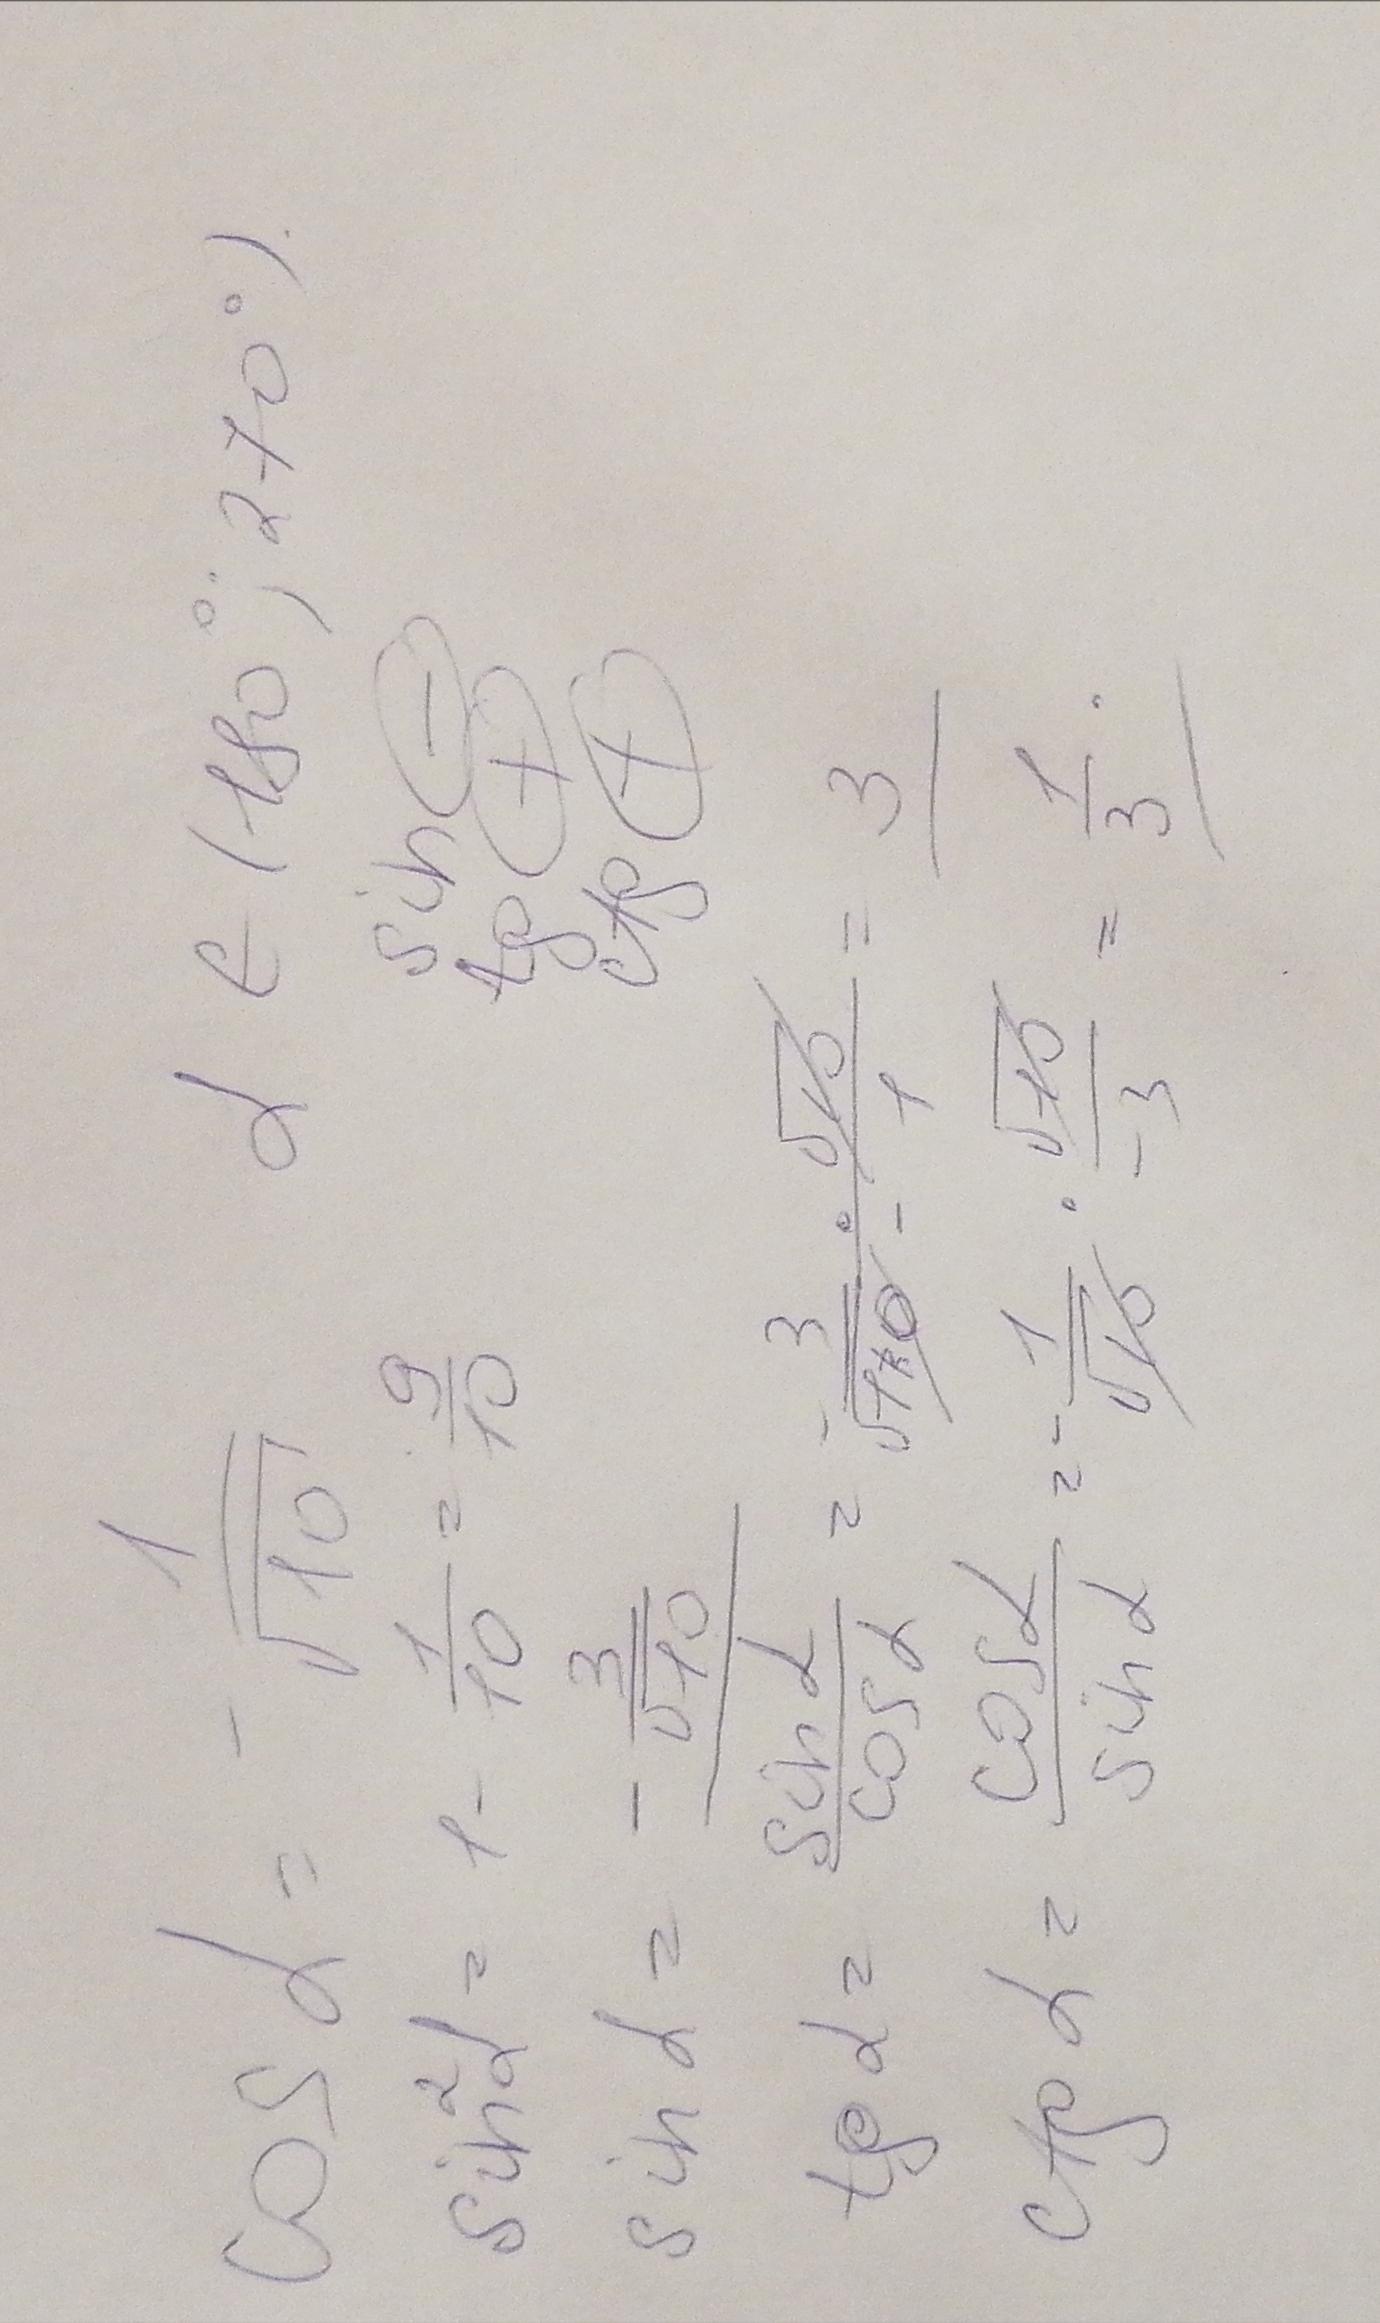 cos α = - 1/√10 α ∈ (180°; 270°).
sin²α = 1 - 1/10 = 9/10 sin (-)
tg (+)
sin α = - 3/√10 ctg (+)
tg α = sin α/cos α = - 3/√10 · √10/-1 = 3
ctg α = cos α/sin α = - 1/√10 · √10/-3 = 1/3.